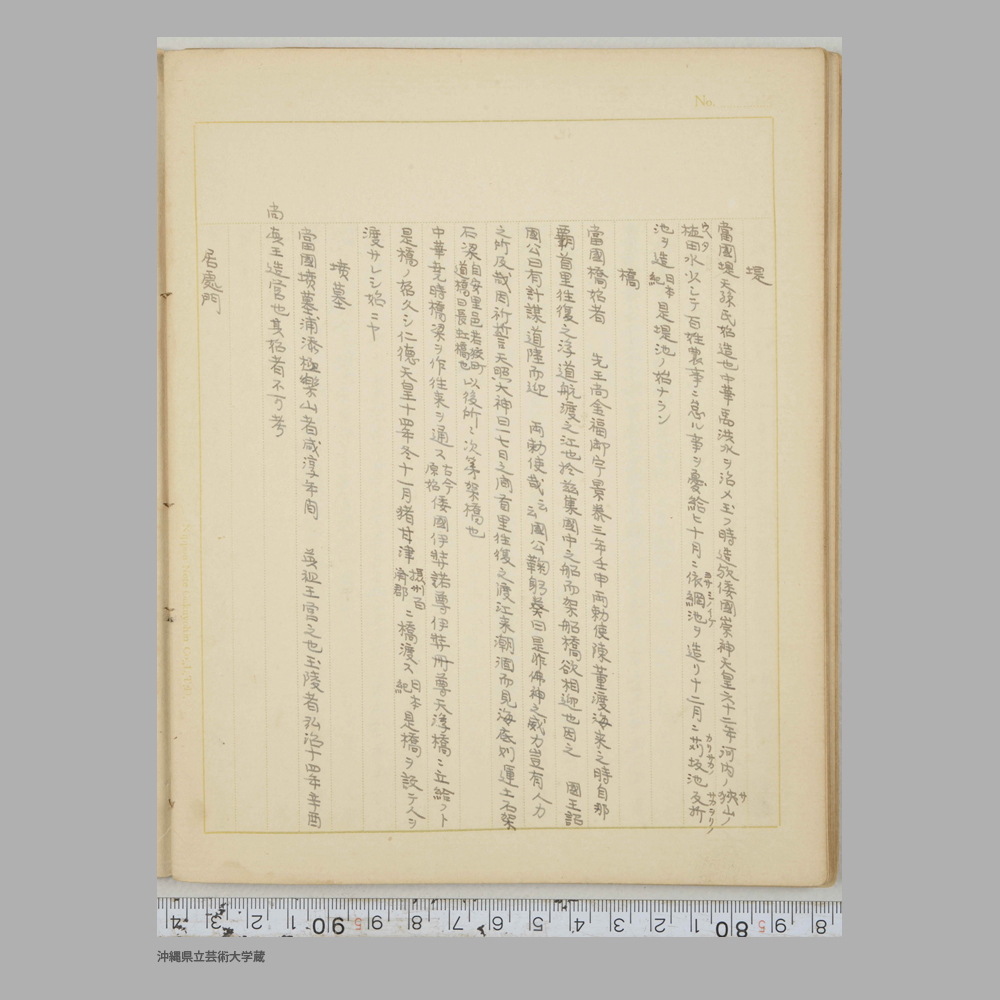 No.
堤
當國堤天孫氏始造也中華禹洪水ヲ治メ玉フ時造啟倭國崇神天皇六十二年河内ノ狭山ノ
サ
植田水火シテ百姓農事ニ怠ル事ヲ憂給ヒ十月ニ依網池ヲ造リ十二月ニ苅坂池反折
ウヘタ
ヨサミノイケ
カリサカノ
サカヲリノ
池ヲ造 日本紀 是堤池ノ始ナラン
橋
當國橋始者 先王尚金福御宇景泰三年壬申両勅使陳董渡海来之時自那
覇首里往復之浮道航渡之江也於茲集國中之船而架船橋欲相迎也因之 國王詔
國公曰有計謀道隆而迎 両勅使哉云云國公鞠躬葵曰是非佛神之威力豈有人力
之所及哉因祈誓天照大神曰一七日之間首里往復之渡江来潮涸而見海底則運土石架
石梁 自安里邑若狭町道橋曰長虹橋也 以後所々次第架橋也
中華堯時橋梁ヲ作往来ヲ通ス 古今原始 倭國伊弉諾尊伊弉冊尊天浮橋ニ立給フト
是橋ノ始久シ仁徳天皇十四年冬十一月猪甘津 摂州百済郡 ニ橋渡ス 日本紀 是橋ヲ設テ人ヲ
渡サレシ始ニヤ
墳墓
當國墳墓浦添極樂山者咸淳年間 英祖王営之也玉陵者弘治十四年辛酉
尚真王造営也其始者不可考
居處門
沖縄県立芸術大学蔵